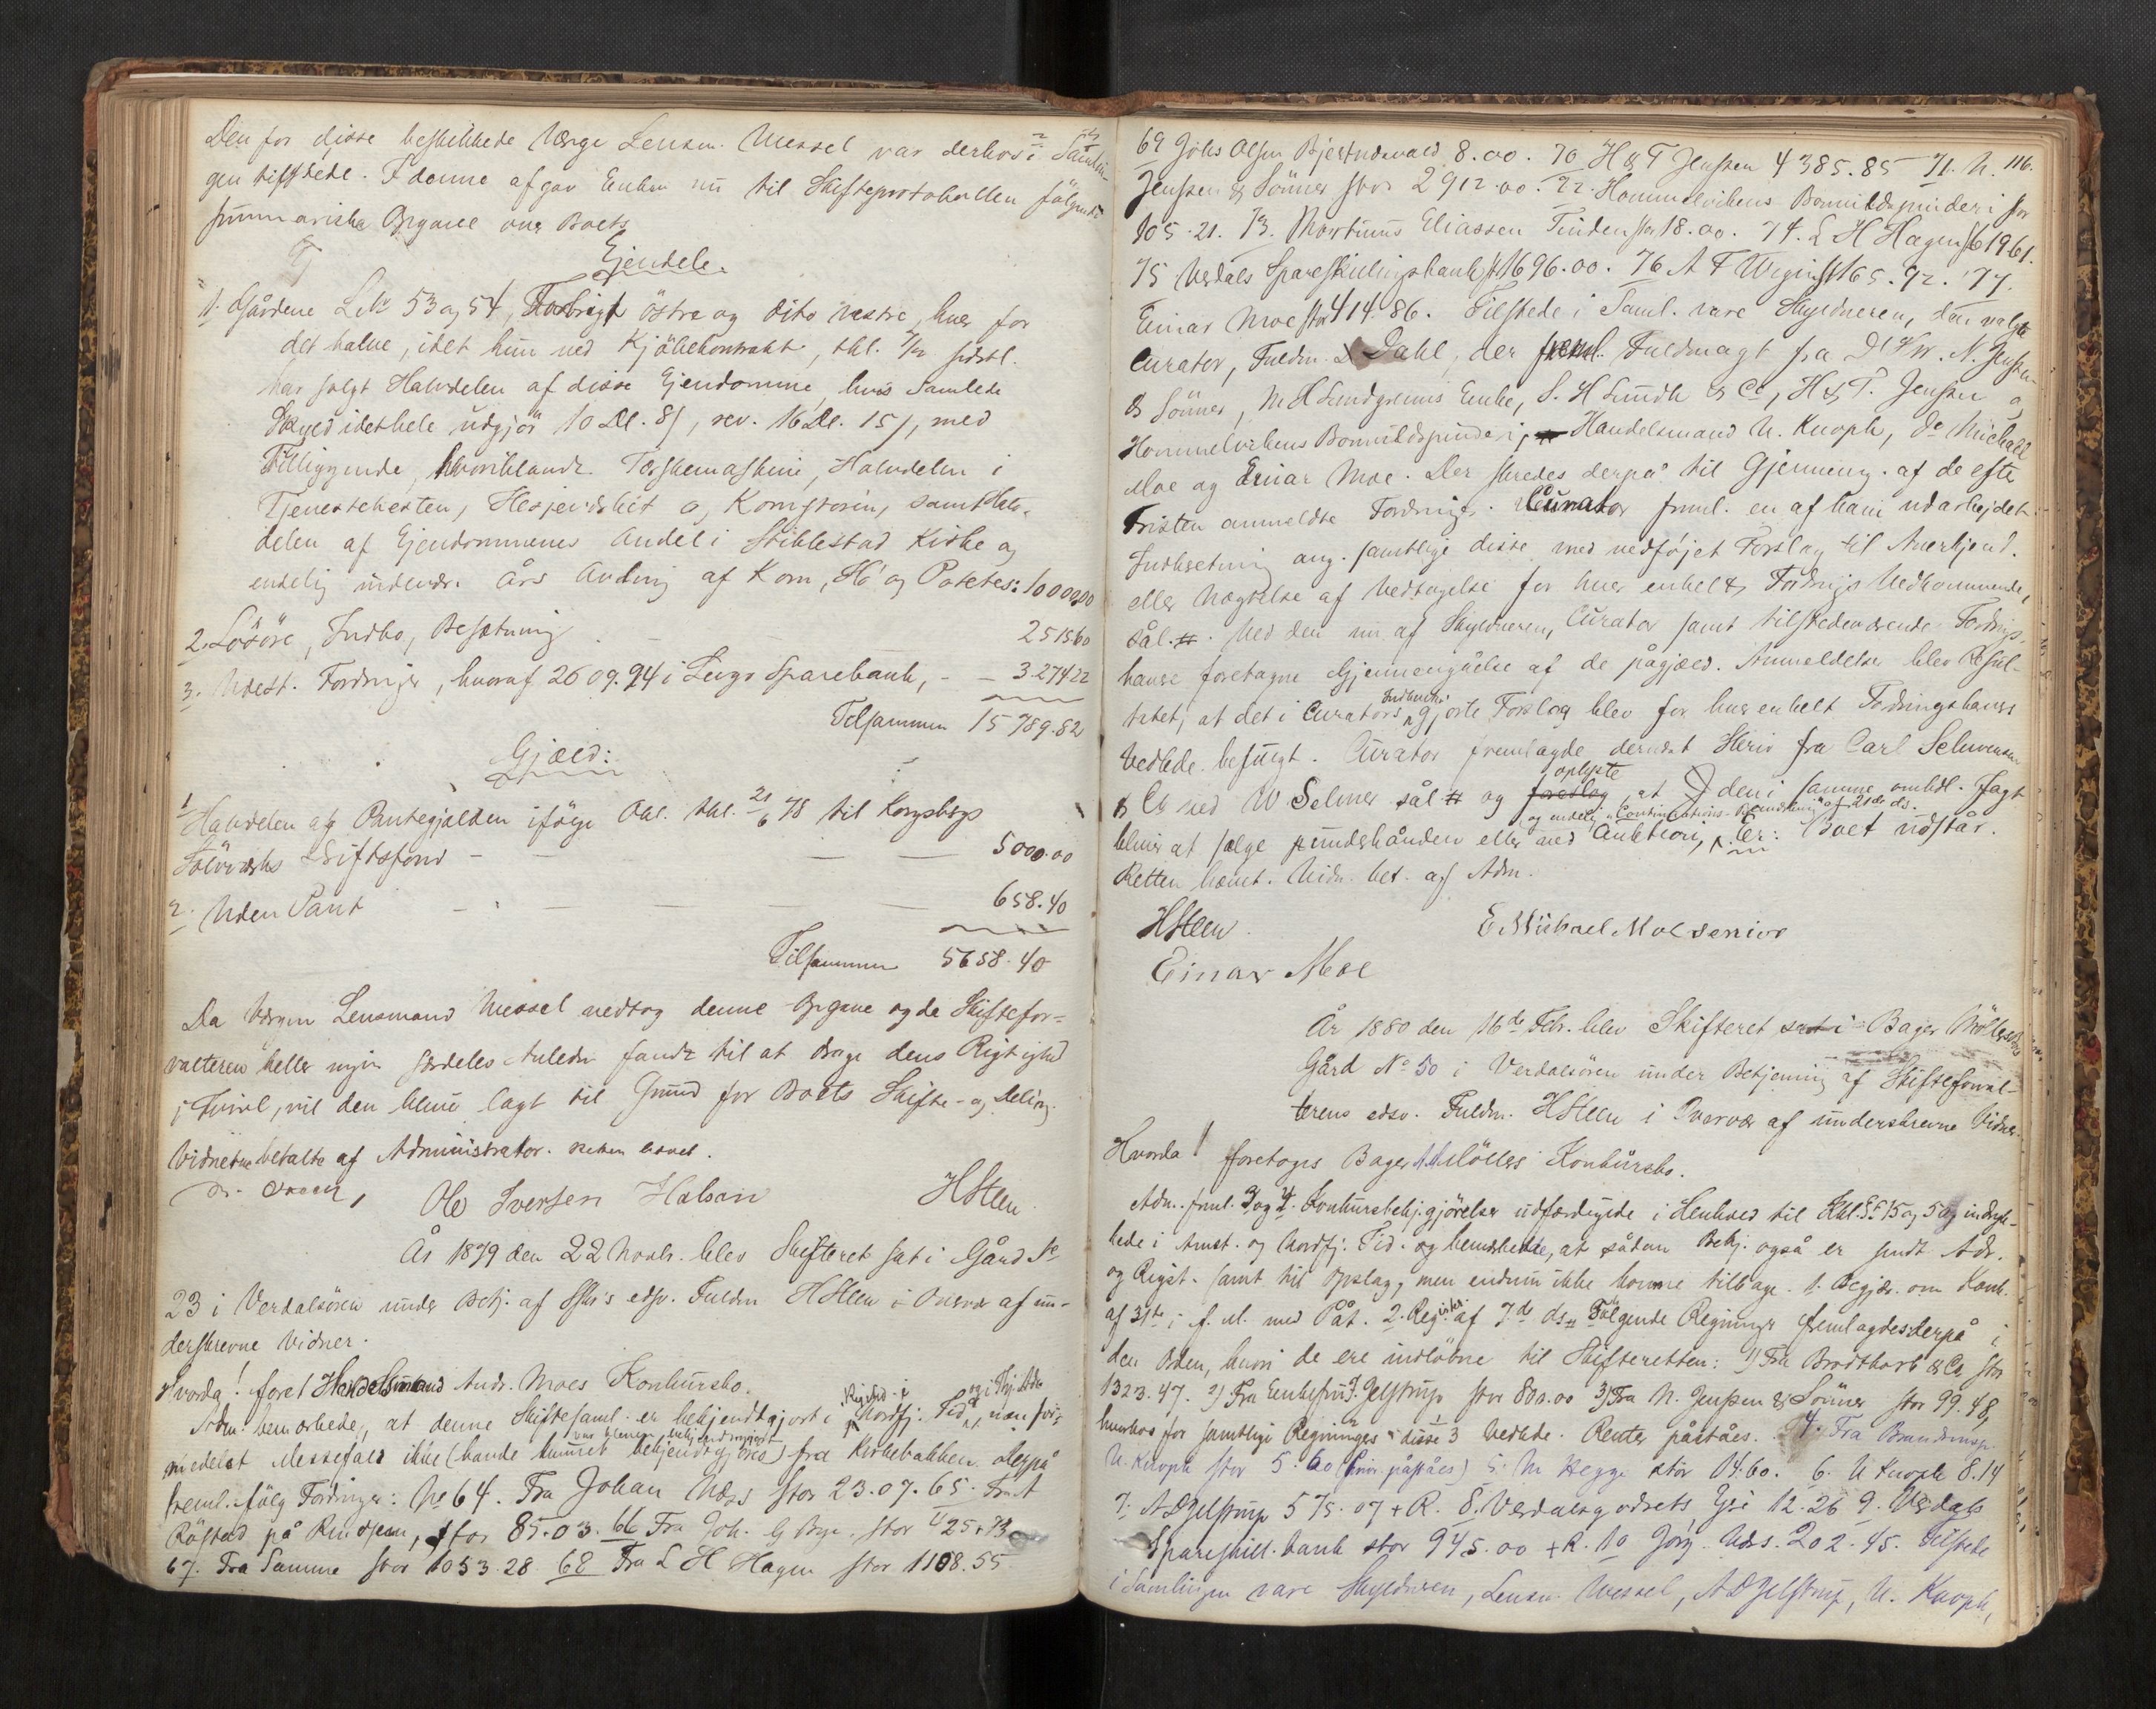 Den for disse beskikkede Værge Lensm. Wessel var derhos i Samlin-
gen tilstede. I denne afgav Enken nu til Skifteprotokollen følgende
summariske Opgave over Boets
Ejendele.
1. Gårdene L No 53 og 54, østre og dito vestre, hver for
det halve, idet hun ved Kjøbekontrakt, thl. sidstl.
har solgt Halvdelen af disse Ejendomme, hvis samlede
Skyld idethele udgjør 10 Dl. 8 ß, rev. 16 Dl. 15 ß, med
Tilliggende, hvoriblandt Tærskemaskine, Halvdelen i
Tjenestehesten, og Kornstørin, samt Halv-
delen af Ejendommenes Andel i Stiklestad Kirke og
endelig indevær. Års Avling af Korn, Hø og Potetes: 10000.00
2. Løsøre, Indbo, Besætning 2515.60
3. Udest. Fordringer, hvoraf 2609.94 i Sparebank, - - 3274.22
Tilsammen 15789.82
Gjæld:
1. Halvdelen af Pantegjælden ifølge Obl. thl. 21/6 78 til Kongsbergs
Sølvværks Driftsfond - - - - 5000.00
2. Uden Pant - - - - - 658.40
Tilsammen 5658.40
Da Værgen Lensmand Wessel vedtog denne Opgave og da Skiftefor-
valteren heller ingen særdeles Anledn. fandt til at drage dens Rigtighed
i Tvivl, vil den blive lagt til Grund for Boets Skifte- og Deling.
Vidnerne betalte af Administrator. Retten hævet.
Ole Iversen Halsan HSteen
År 1879 den 22 Novbr. blev Skifteret sat i Gård No
23 i Verdalsøren under Betj. af Sfv's edsv. Fuldm HSteen i Overvær af un-
derskrevne Vidner.
Hvorda! foret Handelsmand Andr. Moes Konkursbo.
Adm. bemærkede, at denne Skiftesaml. er bekjendtgjort i Nordfj. Tid. men for-
medelst Messefald ikke (hande bekjendtgjøres) fra Kirkebakken. Derpå
freml. følg Fordringer: No 64. Fra Johan Næss stor 23.07. 65. Fra A
Råstad på Rindsem, stor 85.03. 66 Fra Joh. G Bye. stor 425.73
67. Fra Samme stor 1053.28 68 Fra L H Hagen stor 1108.55
116.
69 Johs Olsen Bjertnesvald 8.00. 70 H & T Jenssen 4385.85 71. N.
Jenssen & Sønner stor 2912.00. 72. Hommelvikens Bomuldsspinderi stor
105.21. 73. Martinus Eliassen Tinden stor 18.00. 74. L H Hagen st 1961.
75 Verdals Spareskillingsbank st 1696.00. 76 A F st 165.92. 77.
Einar Moe stor 414.86. Tilstede i Saml. vare Skyldneren, den valgte
Curator, Fuldm. Dahl, der freml. Fuldmagt fra D'Hrr. N. Jenssen
& Sønner, M H Lundgreens Enke, S. H Lundh & Co, H & T. Jenssen og
Hommelvikens Bomuldsspinderi, Handelsmand N. Knoph, Do Michael
Moe og Einar Moe. Der skredes derpå til Gjennemg. af de efter
Fristen anmeldte Fordringer. Curator freml. en af ham udarbejdet
Indberetning ang. samtlige disse med vedføjet Forslag til Anerkjend.
eller Nægtelse af Vedtagelse for hver enkelt Fordrings Vedkommende,
sål. #. Ved den nu af Skyldneren, Curator samt tilstedeværende Fordrings-
havere foretagne Gjennemgåelse af de pågjæld. Anmeldelser blev Resul-
tatet, at det i Curators Indberetn. gjorte Forslag blev for hver enkelt Fordringshavers
Vedkde. befulgt. Curator fremlagde dernæst Skriv fra Carl
& Co ved W Selmer sål # og foreslog oplyste at den i samme omhdl. Jagt
og endelig Continuations-Beretning af 21de ds.
bliver at sælge underhånden eller ved Auktion, Er: Boet udstår.
Retten hævet. Vidn. bet. af Adm.
HSteen. E Michael Moe senior
Einar Moe
År 1880 den 16de Febr. blev Skifteret sat i Bager Möllers
Gård No 50 i Verdalsøren under Betjening af Skifteforval-
terens edsv. Fuldm. HSteen i Overvær af underskrevne Vidner.
Hvorda! foretoges Bager Möllers Konkursbo.
Adm. freml. 3 og 4. Konkursbekj.gjørelser udfærdigede i Henhold til Kkl. §§ 15 og 5 og indryk-
kede i Amst. og Nordfj. Tid. og bemærkede, at sådan Bekj. også er sendt Adr.
og Regist. samt til Opslag, men endnu ikke komne tilbage. 1. Begjær. om Konk.
af 31te i f. M. med Påt. 2. Register af 7de ds. Følgende Regninger fremlagdes derpå i
den Orden, hvori de ere indløbne til Skifteretten: 1) Fra Brodtkorb & Co, stor
1323.47. 2) Fra Enkefru J. Jelstrup stor 800.00 3) Fra N. Jenssen & Sønner stor 99.48,
hvorhos for samtlige Regninger i disse 3 Vedkde. Renter påståes. 4. Fra Brandinsp.
N. Knoph stor 5.60 (Prior. påståes) 5. M Hegge stor 14.60. 6. N Knoph 8.14
7. A D Jelstrup 575.07 + R. 8. Verdalsgodsets Eje 12.26 9. Verdals
Spareskill.bank stor 945.00 + R. 10 Jørg. Næs. 202.45. Tilstede
i Samlingen vare Skyldneren, Lensm. Wessel, A D Jelstrup, N. Knoph,